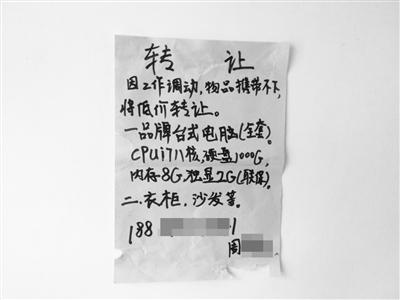 转让
因工作调动,物品携带不下,
将低价转让。
一品牌台式电脑(全套)。
CPUi7八核,硬盘1000G,
内存8G,独显2G(联保)。
二.衣柜,沙发等。
188 1
周